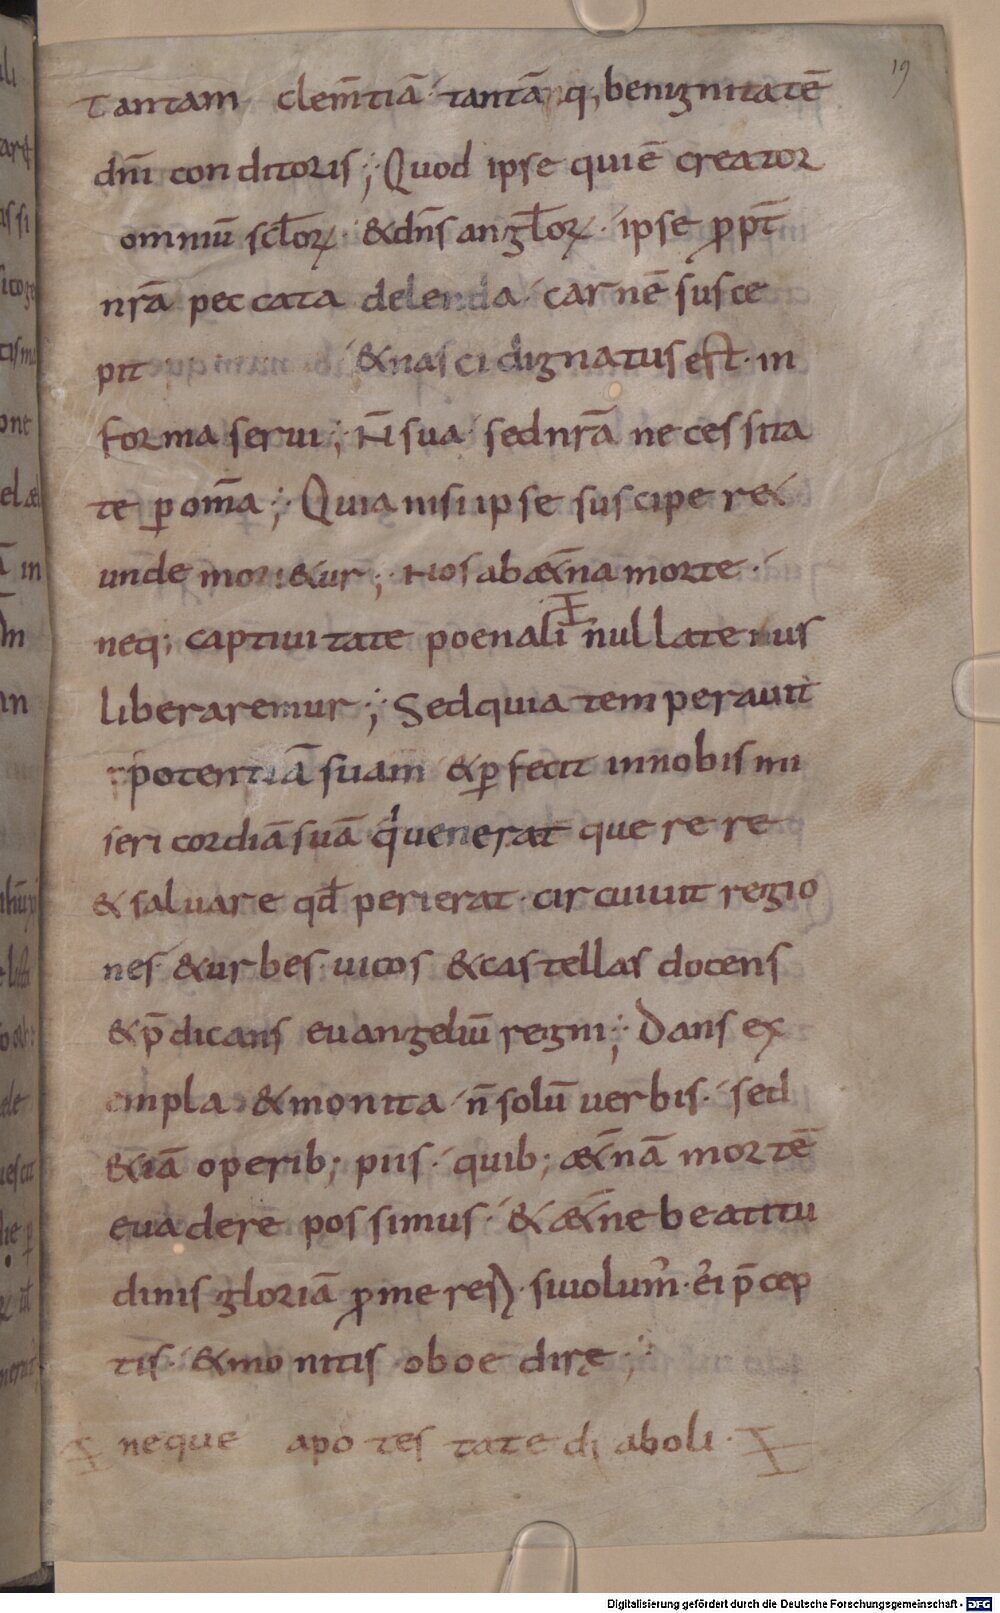 19
tantam clem̄tiā tantā q; benignitatē
dn̄i conditoris; Quod ipse qui ē creator
omniū sc̄lorꝝ · & dn̄s angl̄orꝝ · ipse ꝓpt̄
nr̄a peccata delenda carnē susce
pit & nasci dignatus est · in
forma serui; N̄ sua sed nr̄a necessita
te ꝑ om̄a; Quia nisi ipse susciperet
unde moreretur; Nos ab æt̄na morte ·
neq; captiuitate poenali nullatenus
liberaremur; Sed quia temperauit
potentiā suam & ꝑfecit in nobis mi
sericordiā suā q̓ uenerat querere
& saluare qd̄ perierat · circuiuit regio
nes & urbes uicos & castellas docens
& p̄dicans euangeliū regni; Dans ex
empla & monita n̄ solū uerbis · sed
&iā operib; piis · quib; æt̄nā mortē
euadere possimus · & æt̄ne beatitu
dinis gloriā ꝓmereri · si uolum᾽ · ei᾽ p̄cep
tis · & monitis oboedirę;
neque a potestate diaboli ·
Digitalisierung gefördert durch die Deutsche Forschungsgemeinschaft - DFG